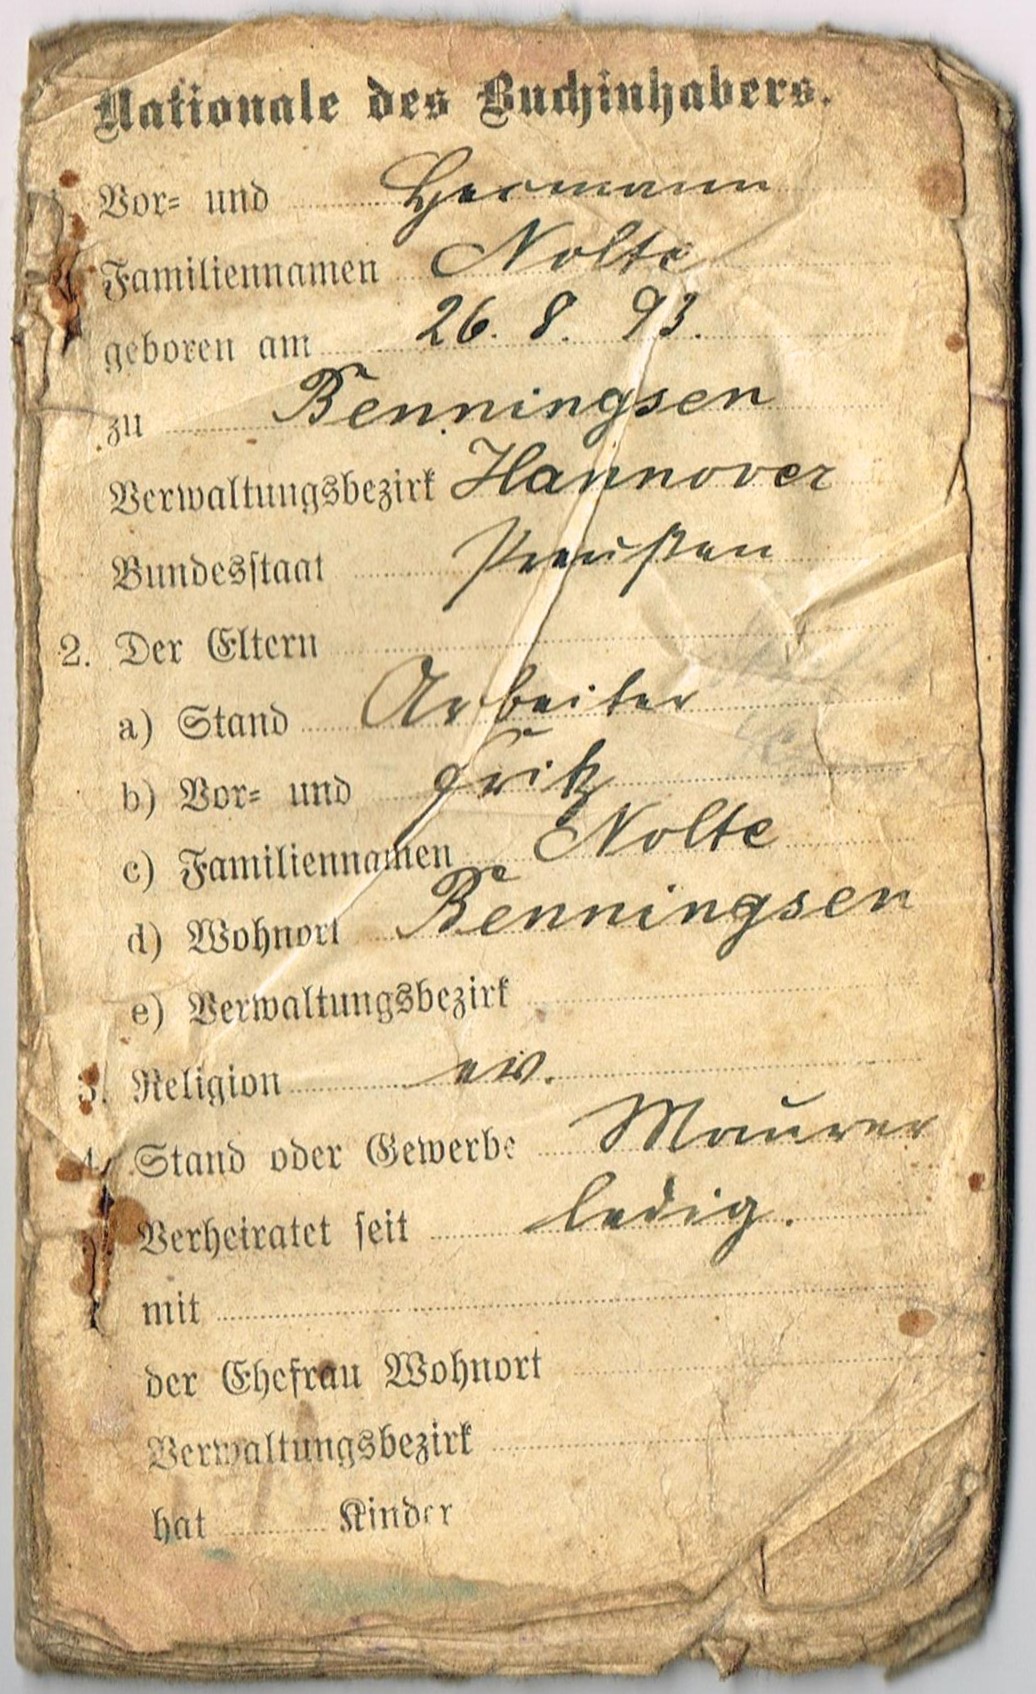 Nationale des Buchinhabers.
Vor= und Hermann
Familiennamen Nolte
geboren am 26. 8. 93.
zu Bennigsen
Verwaltungsbezirk Hannover
Bundesstaat Preußen
2. Der Eltern
a) Stand Arbeiter
b) Vor= und Fritz
c) Familiennamen Nolte
d) Wohnort Benningsen
e) Verwaltungsbezirk
3. Religion ev.
4. Stand oder Gewerbe Maurer
Verheiratet seit ledig.
mit
der Ehefrau Wohnort
Verwaltungsbezirk
hat Kinder